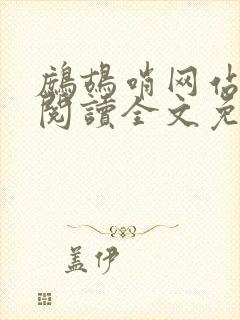 鷓鴣哨网估
閱讀全文免
盖伊